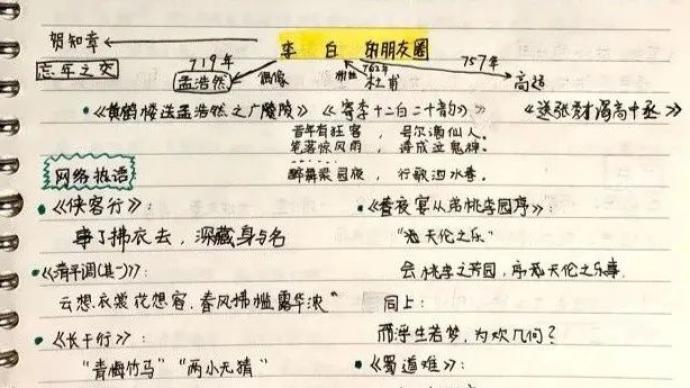 贺知章
李 白 的朋友圈
忘年之交
719年
762年
757年
孟浩然
偶像
杜甫
高适
《黄鹤楼送孟浩然之广陵》
《寄李十二白二十韵》
《送张秀才谒高中丞》
昔年有狂客，号尔谪仙人。
笔落惊风雨，诗成泣鬼神。
……
醉舞梁园夜，行歌泗水春。
网络热语
《侠客行》：
事了拂衣去，深藏身与名
《清平调(其一)》：
云想衣裳花想容，春风拂槛露华浓"
《长干行》：
"青梅竹马" "两小无猜"
《春夜宴从弟桃李园序》：
"天伦之乐"
会桃李之芳园，序天伦之乐事
同上：
而浮生若梦，为欢几何？
《蜀道难》：